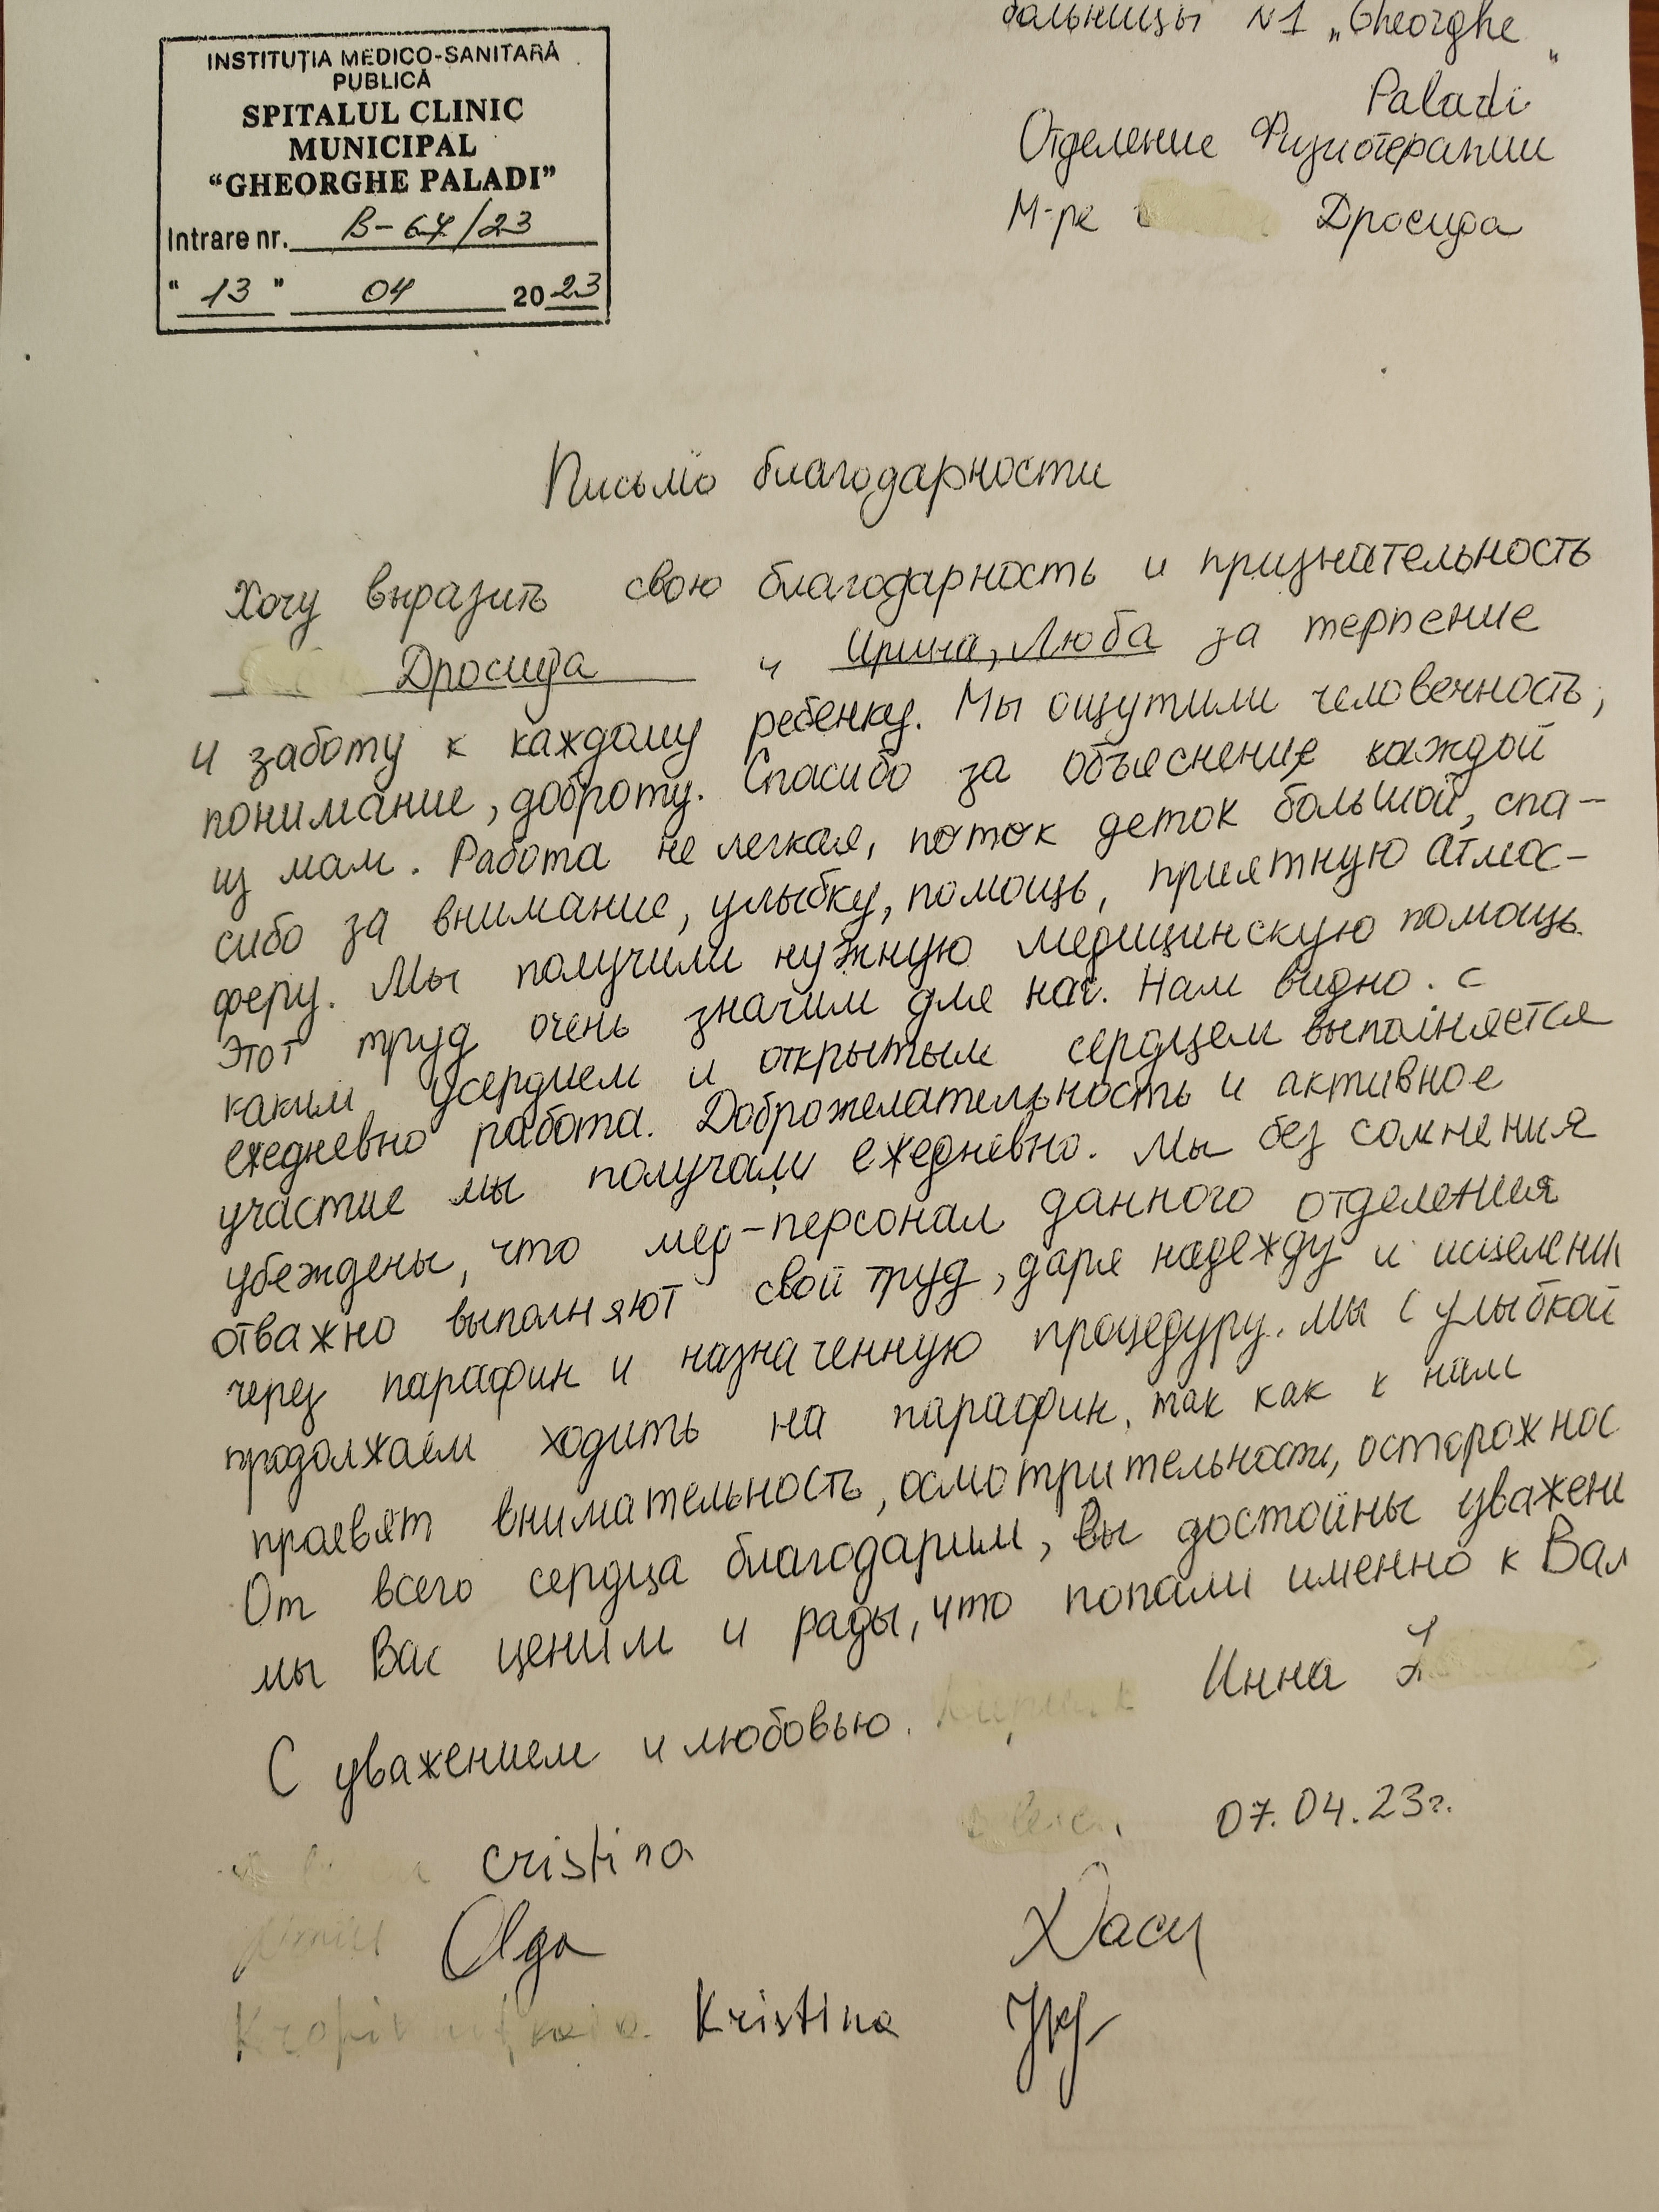 больницы N1 „Gheorghe
Paladi"
INSTITUȚIA MEDICO-SANITARĂ
PUBLICĂ
SPITALUL CLINIC
MUNICIPAL
“GHEORGHE PALADI”
Intrare nr. B-67/23
" 13 " 04 2023
Отделение Физиотерапии
М-ре Дросида
Письмо благодарности
Хочу выразить свою благодарность и признательность
Дросида и Ирина, Люба за терпение
и заботу к каждому ребенку. Мы ощутили человечность,
понимание, доброту. Спасибо за объяснение каждой
из мам. Работа не легкая, поток деток большой, спа-
сибо за внимание, улыбку, помощь, приятную атмос-
феру. Мы получили нужную медицинскую помощь.
Этот труд очень значим для нас. Нам видно. с
каким усердием и открытым сердцем выполняется
ежедневно работа. Доброжелательность и активное
участие мы получали ежедневно. Мы без сомнения
убеждены, что мед-персонал данного отделения
отважно выполняют свой труд, даря надежду и исцелени
через парафин и назначенную процедуру. Мы с улыбкой
продолжаем ходить на парафин, так как к нам
праевят внимательность, осмотрительность, осторожнос
От всего сердца благодарим, вы достойны уважени
мы Вас ценим и рады, что попали именно к Вам
С уважением и любовью. Инна
07.04.23г.
Cristina
Olga
Kristina